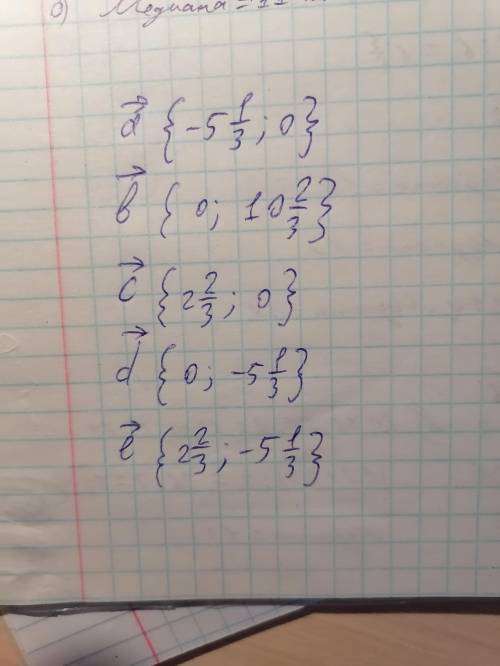 Медиана =
a⃗ {-5 1/3; 0}
b⃗ {0; 10 2/3}
c⃗ {2 2/3; 0}
d⃗ {0; -5 1/3}
e⃗ {2 2/3; -5 1/3}